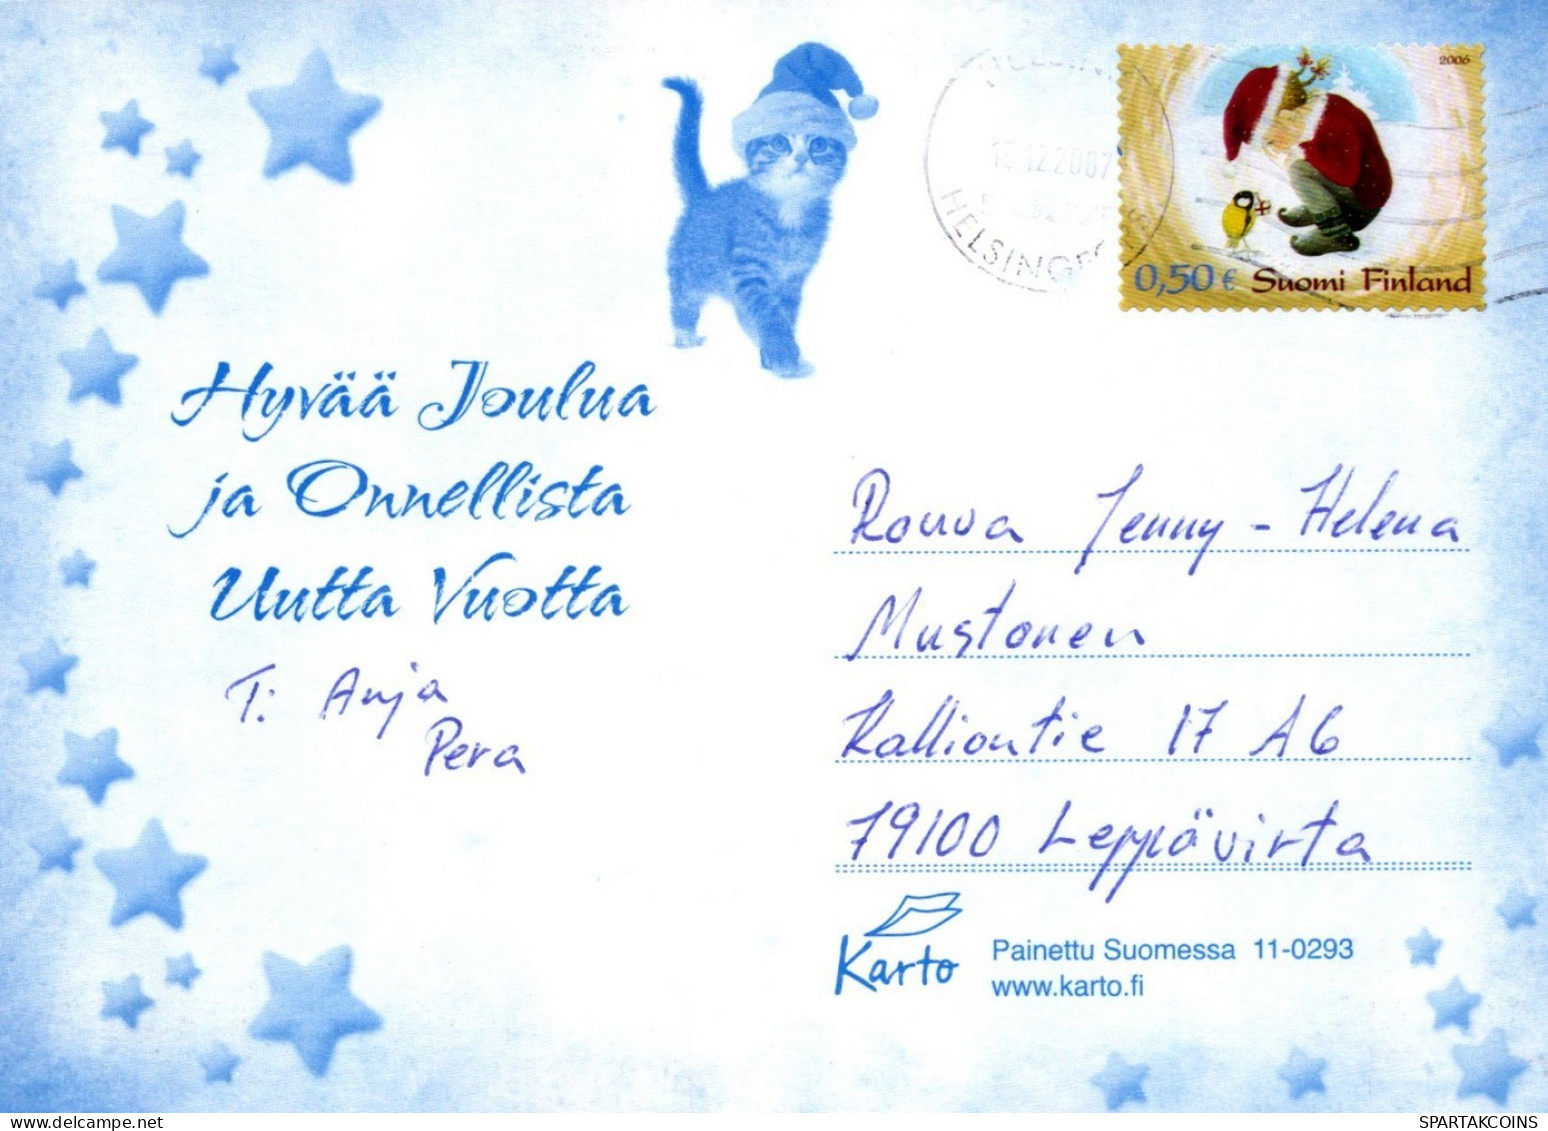 2006
HELSIN
12.2007
HELSINGFORS
0,50 € Suomi Finland
Hyvää Joulua
ja Onnellista
Uutta Vuotta
T: Anja
Pera
Rouva Jenny-Helena
Mustonen
Kalliontie 17 A6
79100 Leppävirta
Karto
Painettu Suomessa 11-0293
www.karto.fi
SPARTAKCOINS
delcampe.net